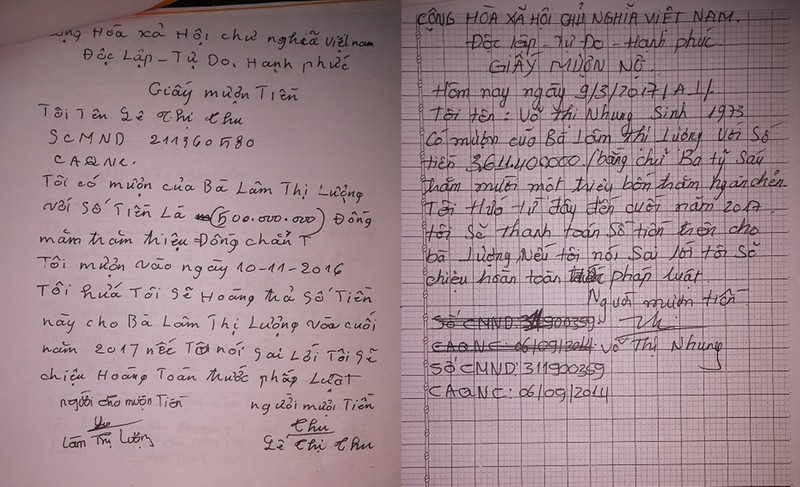 Hòa xả Hội chư nghiã Việt nam
Độc Lập - Tự Do, Hạnh phức
Giấy mượn Tiền
Tôi Tên Lê Thị Thu
SCMND 211360580
CAQNC.
Tôi có mướn của Bà Lâm Thị Lượng
với Số Tiền Là (500.000.000) Đồng
măm trăm thiệu Đồng chẳn T
Tôi mượn vào ngày 10-11-2016
Tôi hưá Tôi Sẽ Hoàng trả Số Tiền
này cho Bà Lâm Thị Lượng vào cuối
năm 2017 nếc Tôi nói Sai Lời Tôi Sẽ
chiệu Hoàng Toàn trước pháp Luật
người cho mượn Tiền
người mượi Tiền
Lâm Thị Lượng
Thu
Lê Thị Thu
CỘNG HÒA XÃ HỘI CHỦ NGHĨA VIỆT NAM.
Độc lập - Tự Do - Hạnh phúc
GIẤY MƯỢN NỢ
Hôm nay ngày 9/3/2017/A.L/.
Tôi tên: Võ Thị Nhung Sinh 1973
Có mượn của Bà Lâm Thị Lượng Với Số
tiền 3611.400000./bằng chữ Ba tỷ Sáu
trăm mười một triệu bốn trăm ngàn chẳn
Tôi Hứa từ đây đến cuối năm 2017
tôi Sẽ thanh toán Số tiền trên cho
bà Lượng Nếu tôi nói Sai lời tôi Sẽ
chiệu hoàn toàn pháp luật
Người mượn tiền
Số CMND: 311900359.
CAQNC: 06/09/2014. Võ Thị Nhung
SỐ CMND: 311900359
CAQNC: 06/09/2014